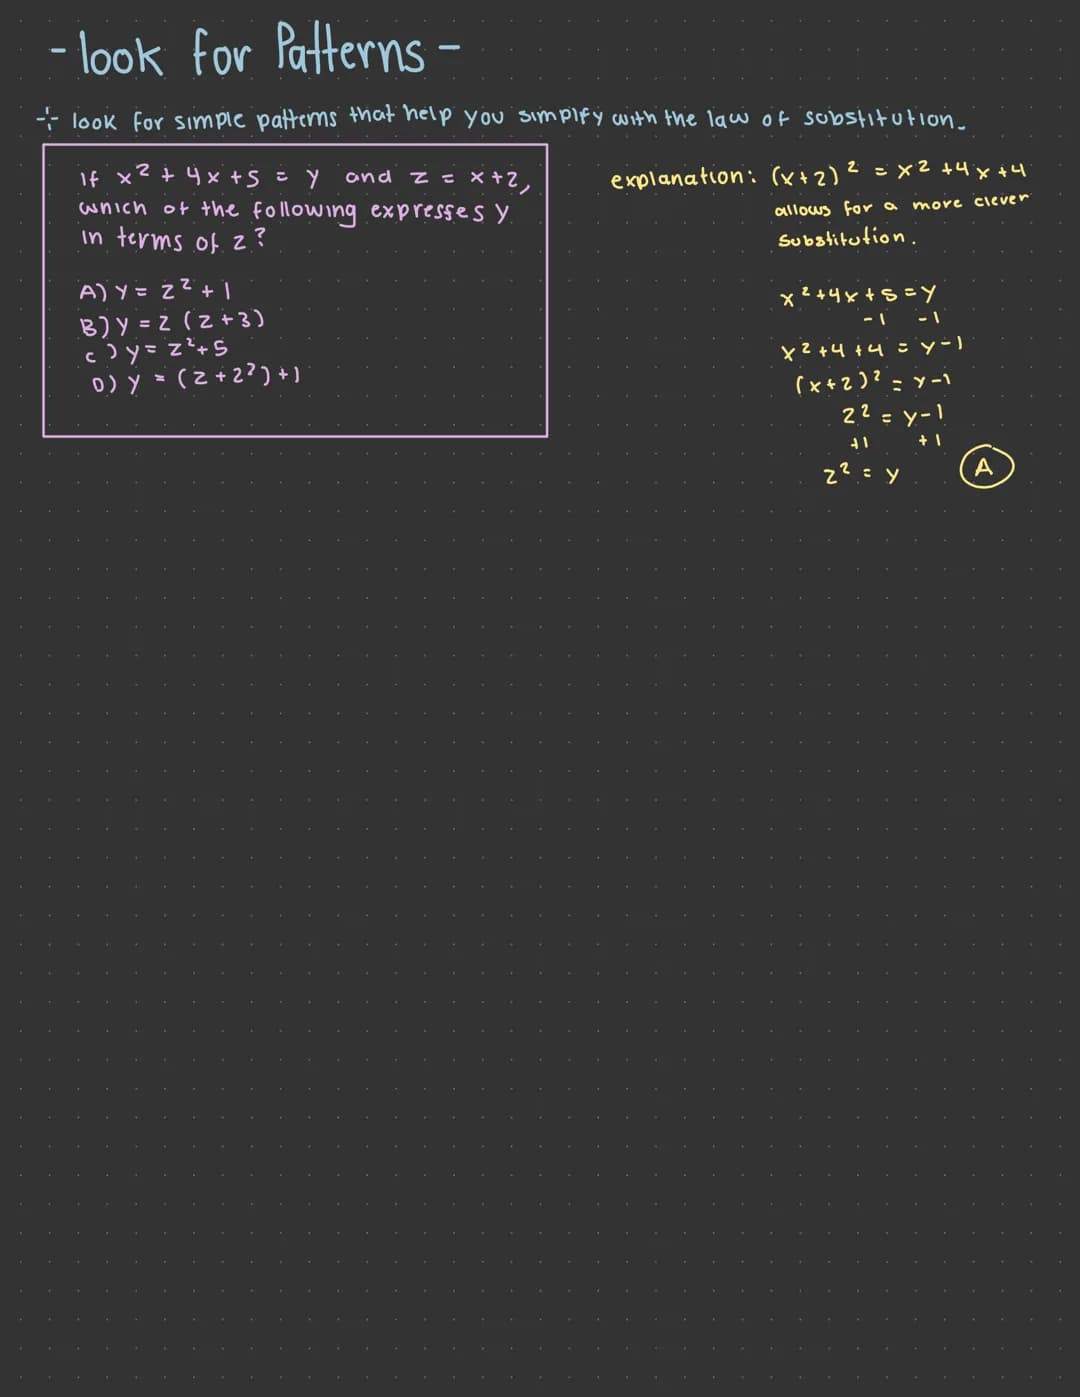 - look for Patterns -
÷ look for simple patterns that help you simplfy with the law of substitution.
If x² + 4x + 5 = y and z = x+2,
which of the following expresses y
in terms of z?
A) y = z² + 1
B) y = z (z+3)
c) y = z² + 5
D) y = (z+2²) + 1
explanation: (x+2)² = x² +4x+4
allows for a more clever
substitution.
x²+4x+5=y
-1 -1
x²+4+4 = y-1
(x+2)² = y-1
z² = y-1
+1 +1
z² = y A